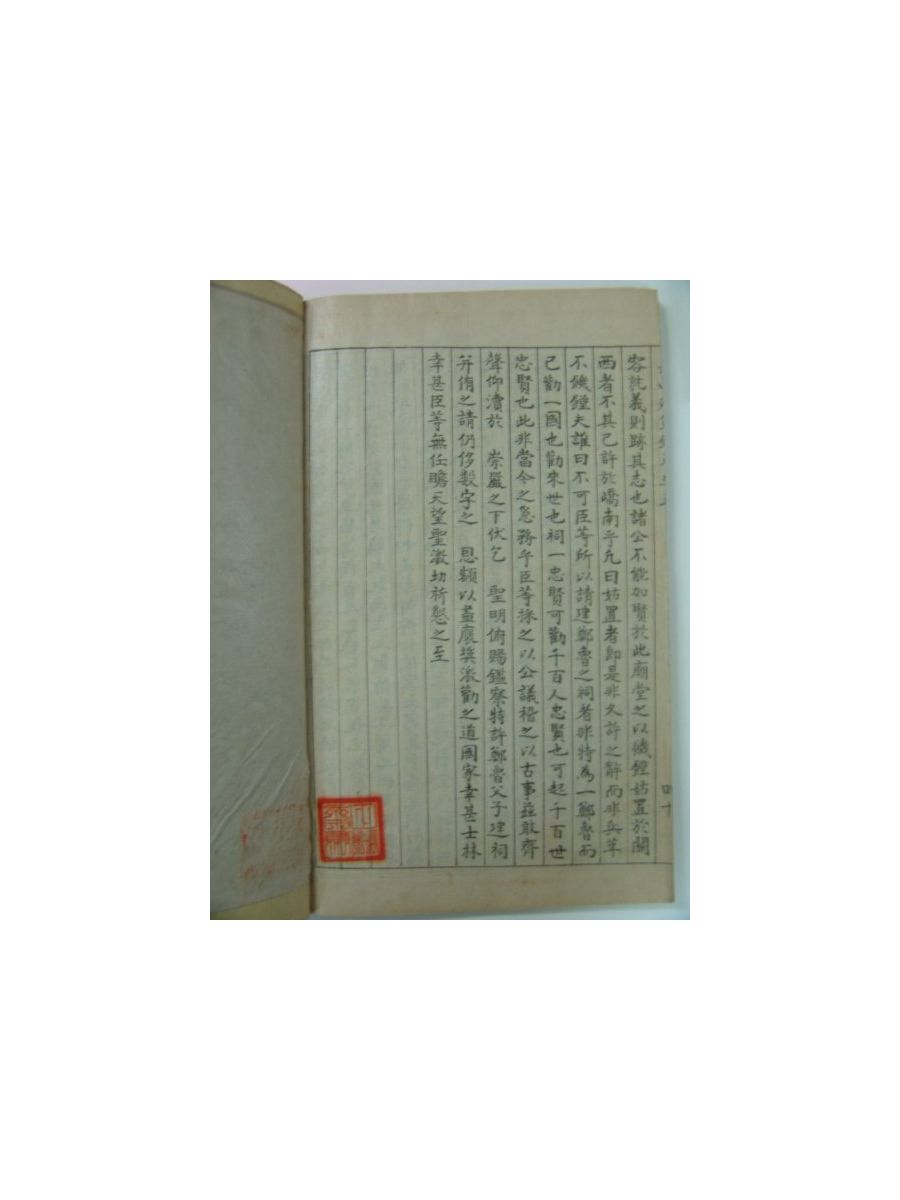 容就義則跡其志也諸公不能加賢於此廟堂之以幾鏗姑置於關
西者不其已許於嶠南乎凡曰姑置者卽是非久許之辭而非兵革
不候鏗夫誰曰不可臣等所以請建鄭魯之祠者非特為一鄭魯而
已勸一國也勸來世也祠一忠賢可勸千百人忠賢也可起千百世
忠賢也此非當今之急務乎臣等採之以公議稽之以古事玆敢齊
聲仰瀆於 崇嚴之下伏乞 聖明俯賜鑑察特許鄭魯父子建祠
幷侑之請仍侈數字之 恩額以盡褒奬激勸之道國家幸甚士林
幸甚臣等無任瞻天望聖激切祈懇之至
四十